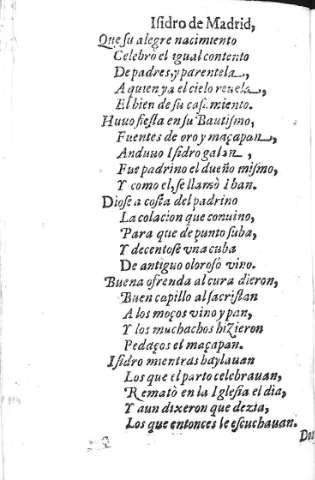 Isidro de Madrid,
Que su alegre nacimiento
Celebrò el igual contento
De padres, y parentela,
A quien ya el cielo reuela,
El bien de su casamiento.
Huuo fiesta en su Bautismo,
Fuentes de oro y maçapan,
Anduuo Isidro galan,
Fue padrino el dueño mismo,
Y como el, se llamò Iban.
Diose a costa del padrino
La colacion que conuino,
Para que de punto suba,
Y decentose vna cuba
De antiguo oloroso vino.
Buena ofrenda al cura dieron,
Buen capillo al sacristan
A los moços vino y pan,
Y los muchachos hizieron
Pedaços el maçapan.
Isidro mientras baylauan
Los que el parto celebrauan,
Rematò en la Iglesia el dia,
Y aun dixeron que dezia,
Los que entonces le escuchauan.